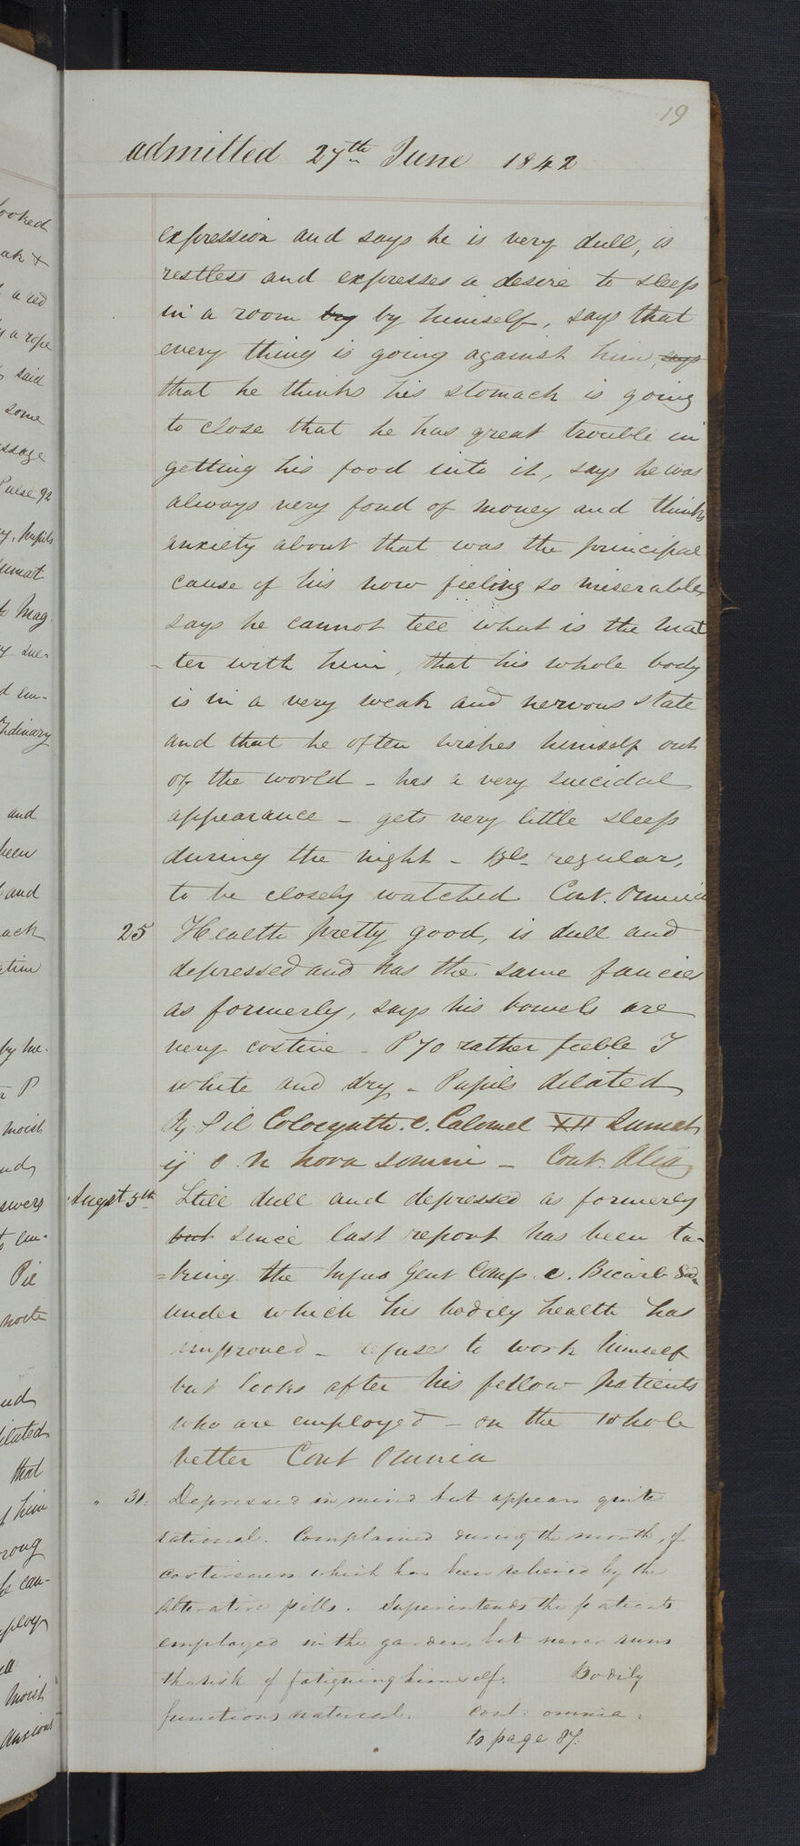 19
admitted 27th June 1842
expression and says he is very dull, is
restless and expresses a desire to sleep
in a room by by himself, says that
every thing is going against him, says
that he thinks his stomach is going
to close that he has great trouble in
getting his food into it, says he was
always very fond of money and thinks
anxiety about that was the principal
cause of his now feeling so miserable,
says he cannot tell what is the mat
-ter with him, that his whole body
is in a very weak and nervous state
and that he often wishes himself out
of the world - has a very suicidal
appearance - gets very little sleep
during the night - Bls regular,
to be closely watched Cont. Omnia
25 Health pretty good, is dull and
depressed and has the same fancies
as formerly, says his bowels are
very costive - P 70 rather feeble T
white and dry - Pupils dilated
Rx Pil Colocynth. c. Calomel XII Sumat
ij o. n hora somni - Cont. Alia
Augst 5th Still dull and depressed as formerly
but since last report has been ta-
=king the Infus Gent Comp. c. Bicarb Soda
under which his bodily health has
improved - refuses to work himself
but looks after his fellow patients
who are employed - on the whole
better Cont Omnia
" 31. Depressed in mind but appears quite
rational. Complained during the month, of
costiveness which has been relieved by the
alterative pills. Superintends the patients
employed in the garden, but never runs
the risk of fatiguing himself. Bodily
functions natural. cont: omnia.
to page 87.
ooked
ak +
a red
a rope
said
some
ssage
Pulse 92
y, pupils
umat
Mag
d em-
rdinary
and
been
and
ach
by he-
P
moist
swers
Pil
nocte
ud
ilated
that
him
rong
he can-
ploy
moist
anxious